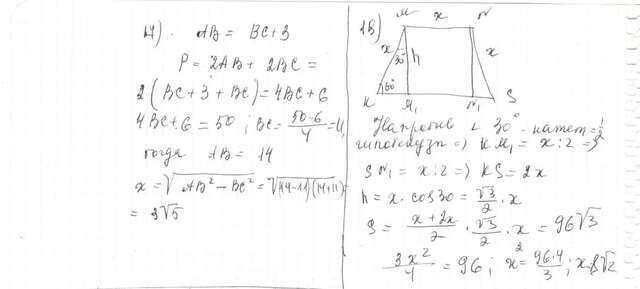 17). AB = BC+3
P = 2AB + 2BC =
2(BC+3+BC) = 4BC+6
4BC+6 = 50; BC = (50-6)/4 = 11,
тогда AB = 14
x = √(AB² - BC²) = √((14-11)(14+11)) =
= 3√5
18)
M x N
x 30° h x
60°
K M₁ N₁ S
Напротив ∠ 30° катет = 1/2
гипотенузы => KM₁ = x:2 =>
SN₁ = x:2 => KS = 2x
h = x · cos30 = √3/2 · x
S = (x+2x)/2 · √3/2 · x = 96√3
3x²/4 = 96; x² = 96·4/3; x = 8√2